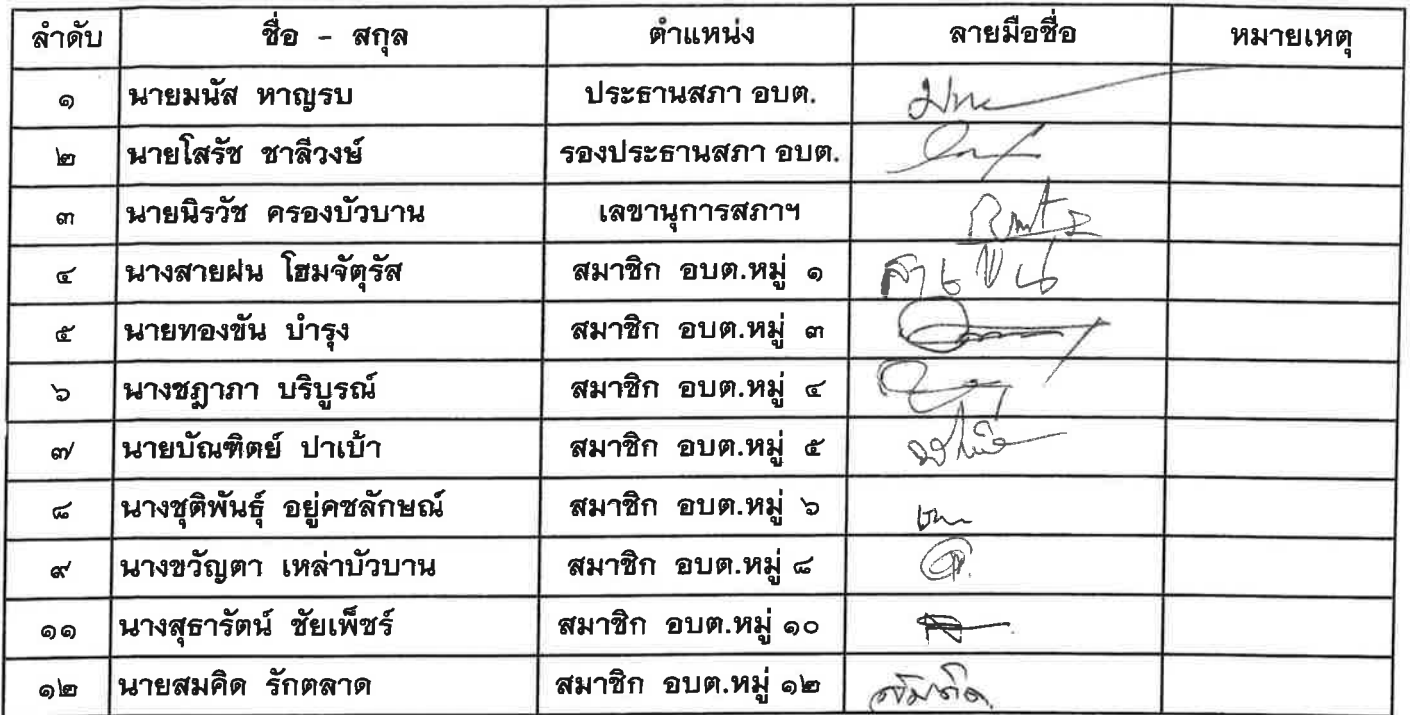 ลำดับ ชื่อ - สกุล ตำแหน่ง ลายมือชื่อ หมายเหตุ
๑ นายมนัส หาญรบ ประธานสภา อบต.
๒ นายโสรัช ชาลีวงษ์ รองประธานสภา อบต.
๓ นายนิรวัช ครองบัวบาน เลขานุการสภาฯ
๔ นางสายฝน โฮมจัตุรัส สมาชิก อบต.หมู่ ๑
๕ นายทองขัน บำรุง สมาชิก อบต.หมู่ ๓
๖ นางชฎาภา บริบูรณ์ สมาชิก อบต.หมู่ ๔
๗ นายบัณฑิตย์ ปาเป้า สมาชิก อบต.หมู่ ๕
๘ นางชุติพันธุ์ อยู่คชลักษณ์ สมาชิก อบต.หมู่ ๖
๙ นางขวัญตา เหล่าบัวบาน สมาชิก อบต.หมู่ ๘
๑๑ นางสุธารัตน์ ชัยเพ็ชร์ สมาชิก อบต.หมู่ ๑๐
๑๒ นายสมคิด รักตลาด สมาชิก อบต.หมู่ ๑๒ สมคิด